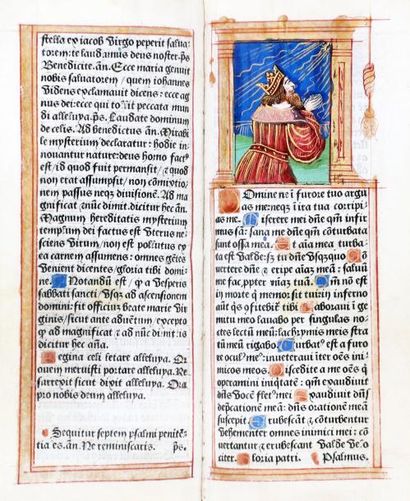 stella ex iacob Virgo peperit salua/
torem: te laudamus deus noster. ps
Benedicite. an. Ecce maria genuit
nobis saluatorem/ quem iohannes
videns exclamauit dicens: ecce ag
nus dei: ecce qui tollit peccata mun
di alleluya. ps. Laudate dominum
de celis. Ad benedictus an. Mirabi
le mysterium declaratur: hodie in
nouantur nature: deus homo fact9
est: id quod fuit permansit/ & quod
non erat assumpsit/ non cōmixtio/
nem passus neqz diuisionē. Ad ma
gnificat & nūc dimit. dicitur hec an.
Magnum hereditatis mysterium
templum dei factus est vterus ne/
sciens virum/ non est pollutus ex
ea carnem assumens: omnes gētes
venient dicentes/ gloria tibi domi
ne. Notandū est/ q a vesperis
sabbati sancti vsqz ad ascensionem
domini: fit officiuz beate marie vir
ginis/ sicut ante aduētum excepto
q ad magnificat & ad nūc dimit. is
dicitur hec anā.
Regina celi letare alleluya. Q
uem meruisti portare alleluya. Re
surrexit sicut dixit alleluya. Ora
pro nobis deum alleluya.
Sequitur septem psalmi penitē/
tia es. an. Ne reminiscaris. ps.
Domine ne i furore tuo argu
as me: neqz i ira tua corripi
as me. Miserere mei dñe qm infir
mus sū: sana me dñe qm cōturbata
sunt ossa mea. Et aīa mea turba-
ta est valde: sz tu dñe vsqzquo. Cō
uertere dñe & eripe aīaz meā: saluū
me fac, ppter mīaz tuā. Qm nō est
in morte q memor sit tui: in inferno
aūt qs cōfitebit tibi. Laboraui i ge
mitu meo lauabo per singulas no
ctes lectū meū: lacrymis meis stra
tū meū rigabo. Turbat9 est a furo
re ocul9 me9: inueteraui iter oēs ini
micos meos. Discedite a me oēs q
operamini iniqtatē: qm exaudiuit
dñs vocē flet9 mei. Exaudiuit dñs
depcationē meā: dñs orationē meā
suscepit. Erubescāt & cōturbentur
vehementer omnes inimici mei: cō
uertantur & erubescant valde velo
citer. Gloria patri. Psalmus.